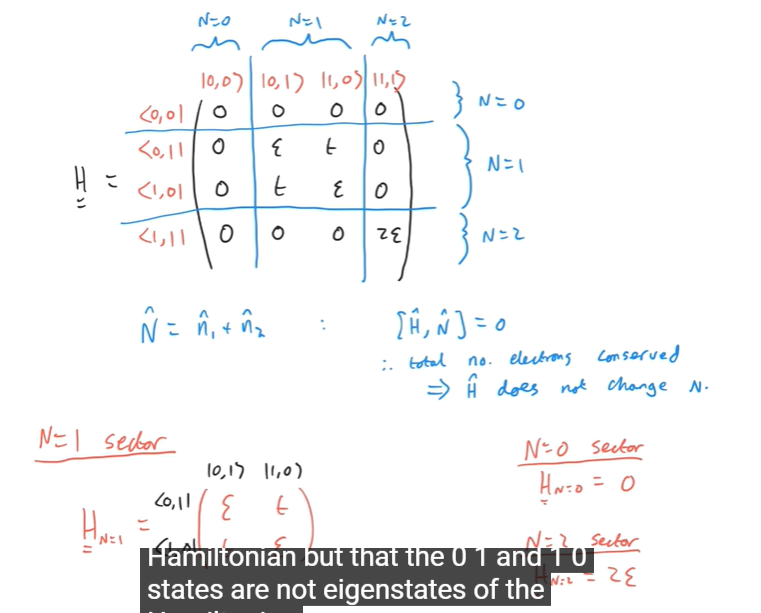 N=0 N=1 N=2
|0,0⟩ |0,1⟩ |1,0⟩ |1,1⟩
⟨0,0| 0 0 0 0 } N=0
⟨0,1| 0 ε t 0
H = ⟨1,0| 0 t ε 0 } N=1
⟨1,1| 0 0 0 2ε } N=2
N̂ = n̂₁ + n̂₂ : [Ĥ, N̂] = 0
∴ total no. electrons conserved
⇒ Ĥ does not change N.
N=1 sector
N=0 sector
H_N=0 = 0
|0,1⟩ |1,0⟩
⟨0,1| ε t
H_N=1 =
N=2 sector
H_N=2 = 2ε
Hamiltonian but that the 0 1 and 1 0
states are not eigenstates of the